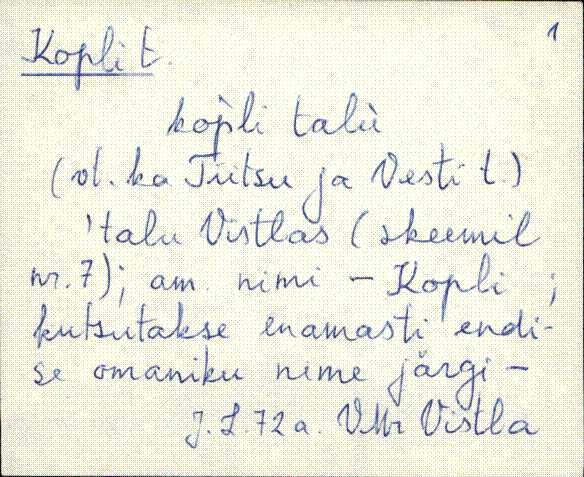 1
Kopli t.
kop̀li talù
(vt. ka Tiitsu ja Vesti t.)
'talu Vistlas (skeemil
nr. 7); am. nimi – Kopli ;
kutsutakse enamasti endi-
se omaniku nime järgi –
J. L. 72 a. VMr Vistla